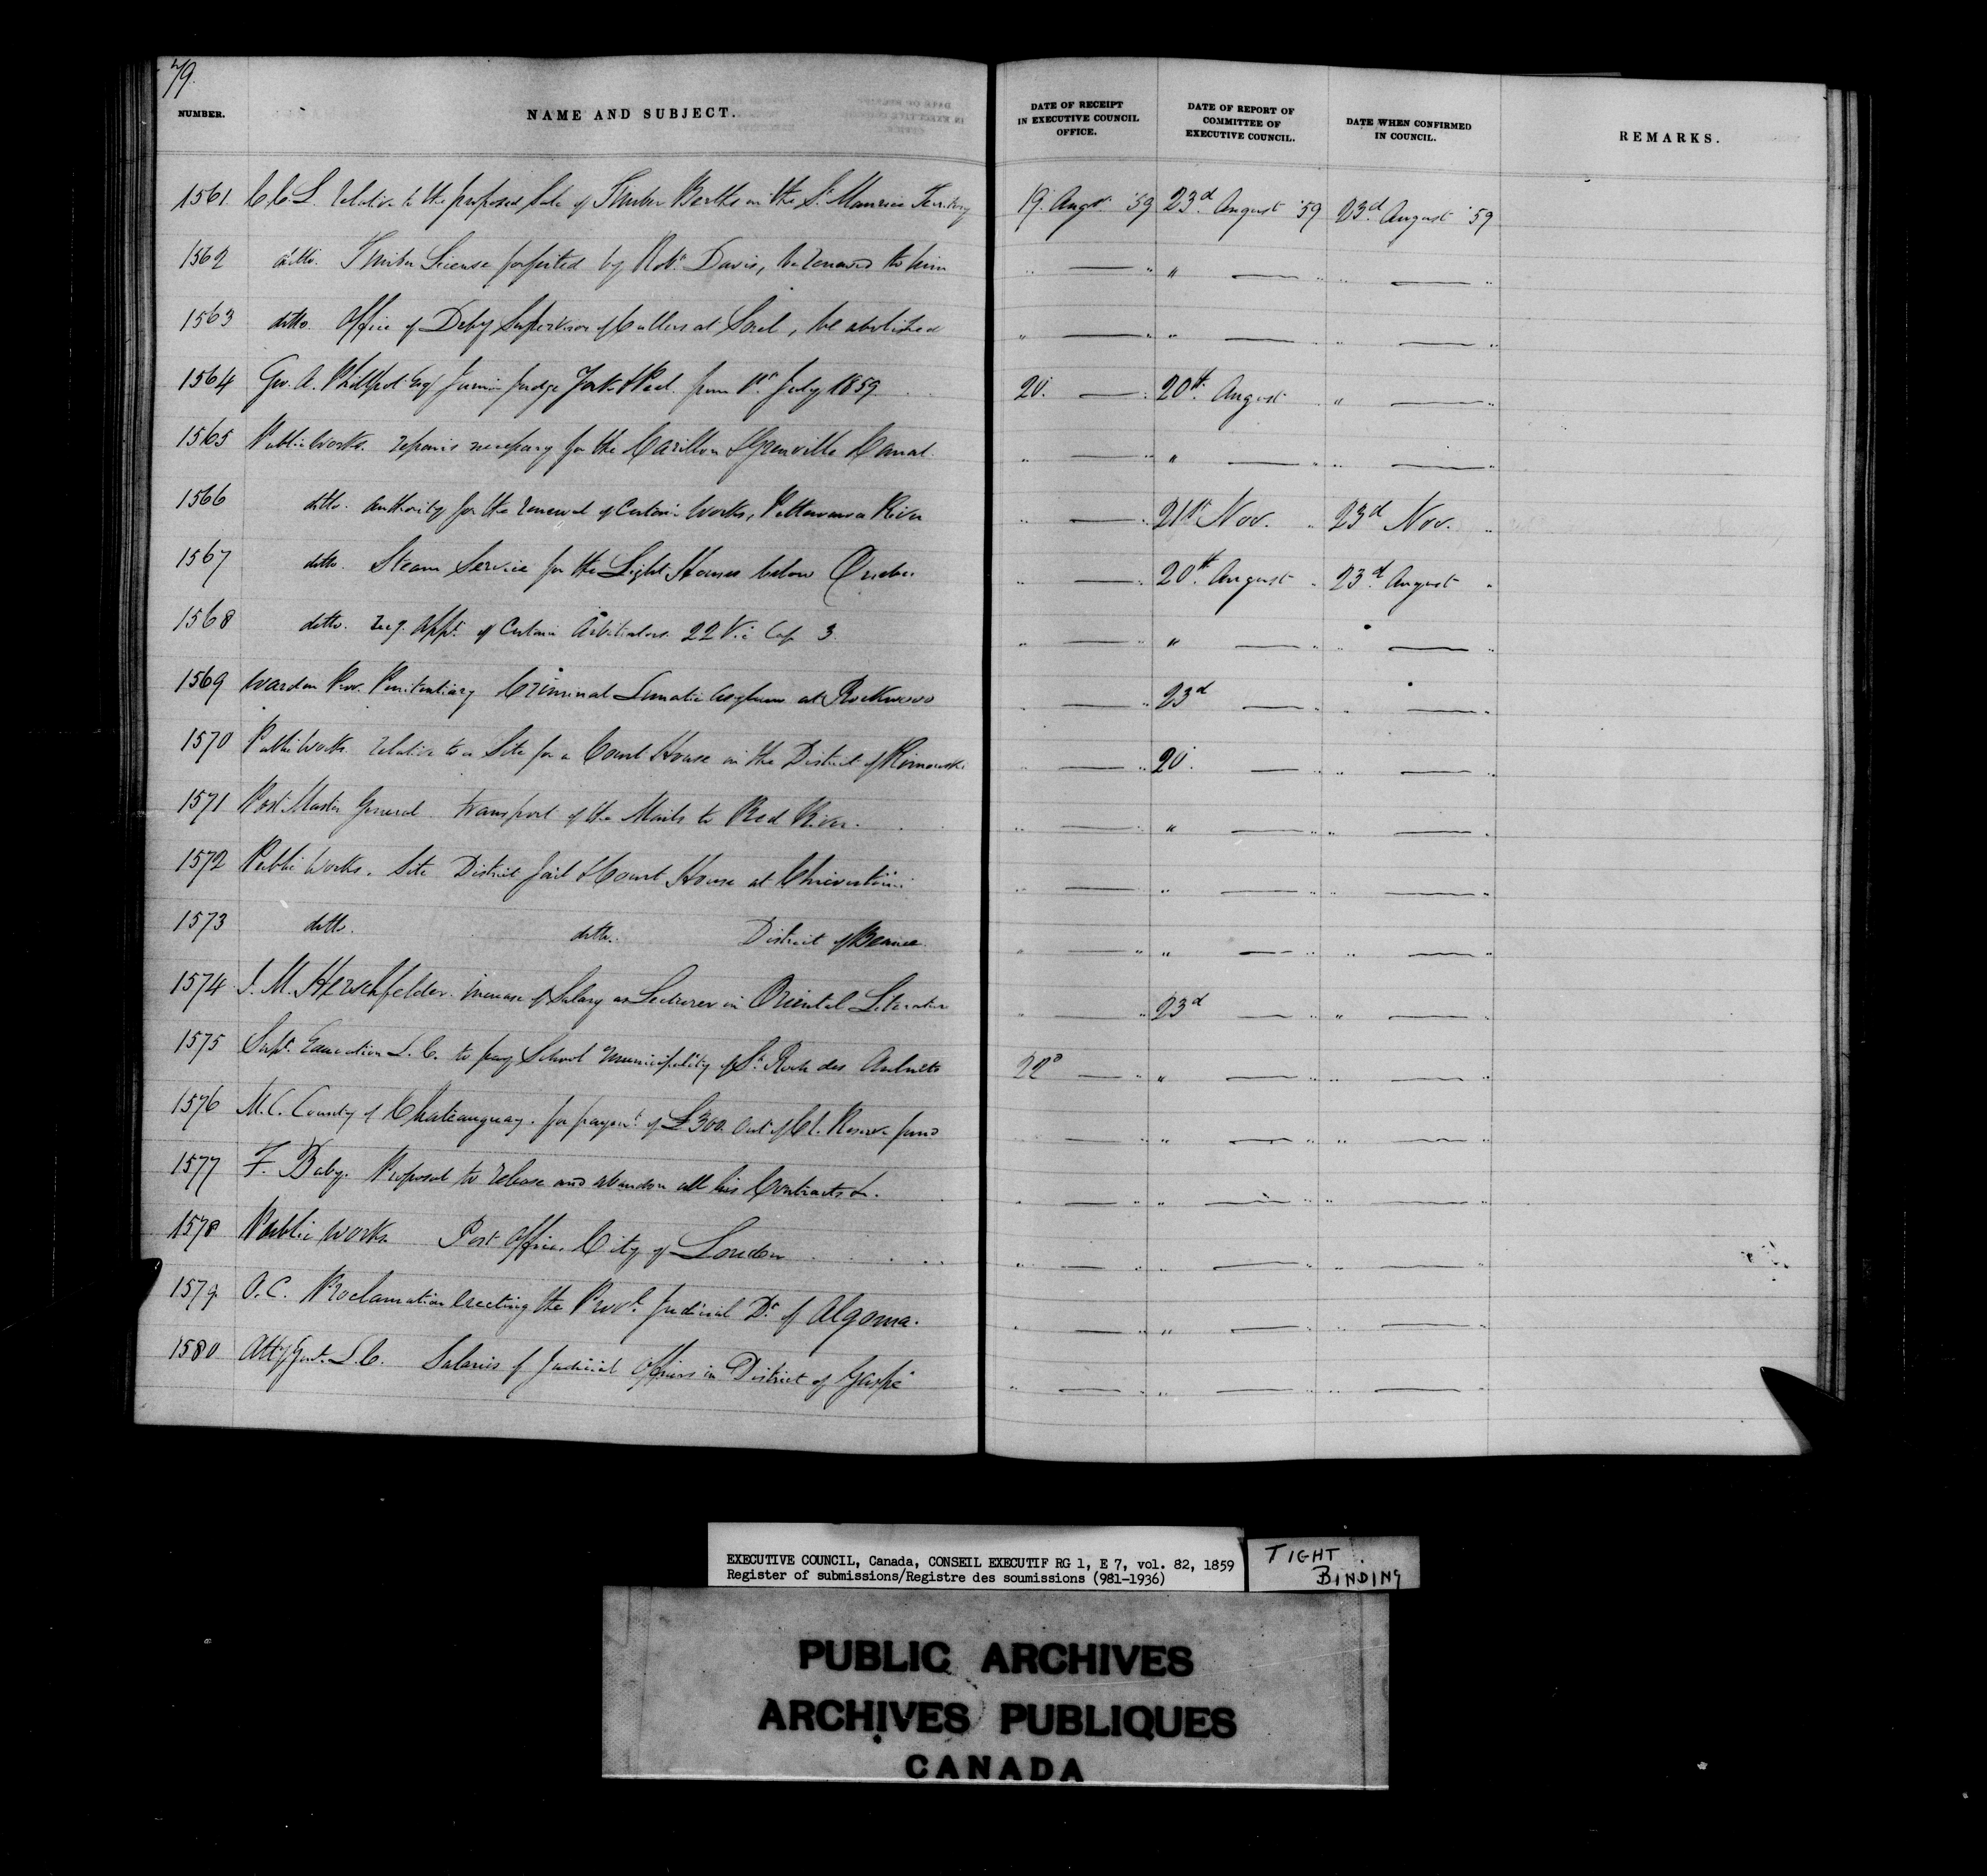 79.
NUMBER. NAME AND SUBJECT. DATE OF RECEIPT IN EXECUTIVE COUNCIL OFFICE. DATE OF REPORT OF COMMITTEE OF EXECUTIVE COUNCIL. DATE WHEN CONFIRMED IN COUNCIL. REMARKS.
1561 C.C.L. relative to the proposed sale of Timber Berths in the St. Maurice Territory 19. Augt. '59 23d. August '59 23d. August '59
1562 ditto. Timber License forfeited by Robt. Davis, be renewed to him " — " " — " — "
1563 ditto. Office of Depy Supervisor of Cullers at Sorel, be abolished " — " " — " — "
1564 Geo. A. Phillpot Esqr Junior Judge York & Peel from 1st. July 1859 20. — " 20th. August " " — "
1565 Public Works. repairs necessary for the Carillon & Grenville Canal. " — " " — " " — "
1566 ditto. authority for the renewal of Certain Works, Pettewawa River " — " 21st Nov. " 23d Nov. "
1567 ditto. Steam Service for the Light Houses below Quebec " — " 20th. August " 23d. August "
1568 ditto. req. appt. of Certain Arbitrators. 22 Vic Cap 3. " — " " — " " — "
1569 Warden Prov. Penitentiary Criminal Lunatic Asylum at Rockwood " — " 23d — " " — "
1570 Public Works relative to a Site for a Court House in the District of Rimouski " — " 20. — " " — "
1571 Post Master General. transport of the Mails to Red River. " — " " — " " — "
1572 Public Works. Site District Jail & Court House at " — " " — " " — "
1573 ditto. ditto. District of Beauce. " — " " — " " — "
1574 J. M. Hirschfelder. Increase of Salary as Lecturer in Oriental Literature " — " 23d — " " — "
1575 Supt. Education L.C. to pay School Municipality of St. Roch des Aulnets 22d — " " — " " — "
1576 M.C. County of Chateauguay. for paymt. of £300. out of Cl. Reserve fund " — " " — " " — "
1577 F. Baby. Proposal to release and abandon all his Contracts &c. " — " " — " " — "
1578 Public Works Post Office. City of London " — " " — " " — "
1579. O.C. Proclamation erecting the Provl. Judicial Dt. of Algoma. " — " " — " " — "
1580 Atty Genl. L.C. Salaries of Judicial Officers in District of Gaspé " — " " — " " — "
EXECUTIVE COUNCIL, Canada, CONSEIL EXECUTIF RG 1, E 7, vol. 82, 1859
Register of submissions/Registre des soumissions (981-1936)
TIGHT
BINDING
PUBLIC ARCHIVES
ARCHIVES PUBLIQUES
CANADA